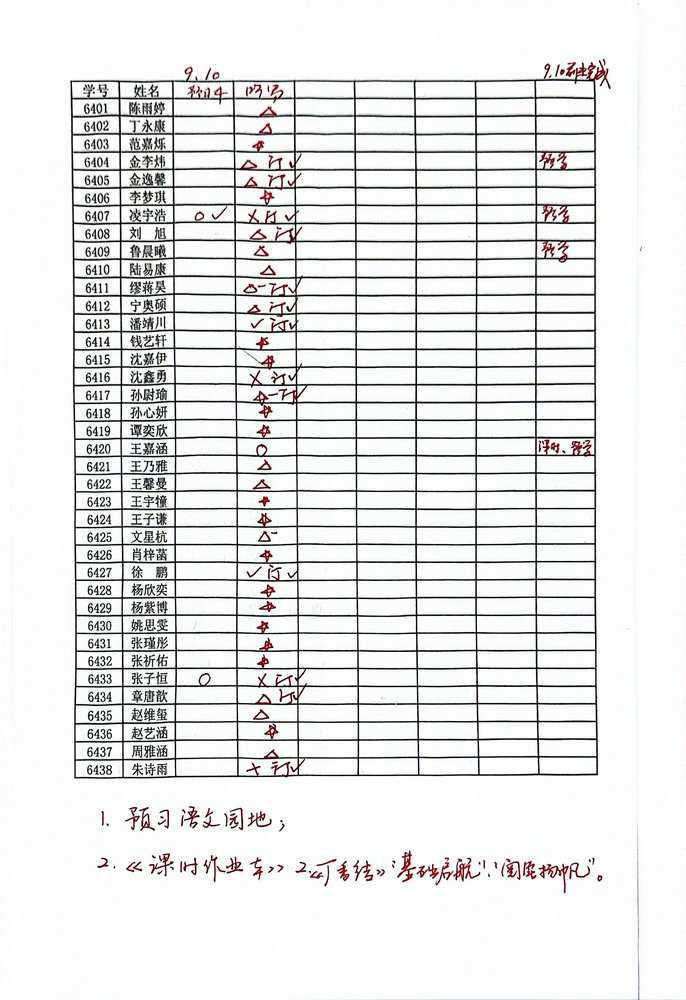 9.10 9.10
学号 姓名 预习4
6401 陈雨婷 △
6402 丁永康 △
6403 范嘉烁 ☆
6404 金李炜 △ 订 ✓ 预学
6405 金逸馨 △ 订 ✓
6406 李梦琪 ☆
6407 凌宇浩 ○ ✓ × 订 ✓ 预学
6408 刘 旭 △ 订 ✓
6409 鲁晨曦 △ 预学
6410 陆易康 △
6411 缪蒋昊 △- 订 ✓
6412 宁奥硕 △ 订 ✓
6413 潘靖川 ✓ 订 ✓
6414 钱艺轩 ☆
6415 沈嘉伊 ☆
6416 沈鑫勇 × 订 ✓
6417 孙尉瑜 ☆- 订 ✓
6418 孙心妍 ☆
6419 谭奕欣 ☆
6420 王嘉涵 ○ 课时、预学
6421 王乃雅 △
6422 王馨曼 △
6423 王宇犝 ☆
6424 王子谦 ☆
6425 文星杭 △-
6426 肖梓菡 ☆
6427 徐 鹏 ✓ 订 ✓
6428 杨欣奕 ☆
6429 杨紫博 ☆
6430 姚思雯 ☆
6431 张瑾彤 ☆
6432 张祈佑 ☆
6433 张子恒 ○ × 订 ✓
6434 章唐歆 △ 订 ✓
6435 赵维玺 △
6436 赵艺涵 ☆
6437 周雅涵 △
6438 朱诗雨 × 订 ✓
1. 预习语文园地；
2.《课时作业本》2.《丁香结》"基础启航"、"阅读扬帆"。